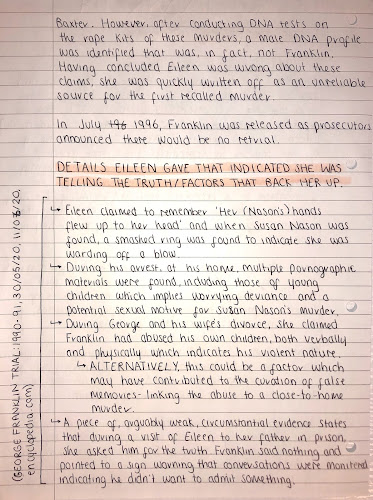 Baxter. However, after conducting DNA tests on
the rape kits of these murders, a male DNA profile
was identified that was, in fact, not Franklin.
Having concluded Eileen was wrong about these
claims, she was quickly written off as an unreliable
source for the first recalled murder.
In July 196 1996, Franklin was released as prosecutors
announced there would be no retrial.
DETAILS EILEEN GAVE THAT INDICATED SHE WAS
TELLING THE TRUTH/FACTORS THAT BACK HER UP.
↳ Eileen claimed to remember 'Her (Nason's) hands
flew up to her head' and when Susan Nason was
found, a smashed ring was found to indicate she was
warding off a blow.
↳ During his arrest, at his home, multiple pornographic
materials were found, including those of young
children which implies worrying deviance and a
potential sexual motive for Susan Nason's murder.
↳ During George and his wife's divorce, she claimed
Franklin had abused his own children, both verbally
and physically which indicates his violent nature.
↳ ALTERNATIVELY, this could be a factor which
may have contributed to the curation of false
memories - linking the abuse to a close-to-home
murder.
↳ A piece of, arguably weak, circumstantial evidence states
that during a visit of Eileen to her father in prison,
she asked him for the truth. Franklin said nothing and
pointed to a sign warning that conversations were monitered
indicating he didn't want to admit something.
(GEORGE FRANKLIN TRIAL: 1990-91, 30/05/20, 11/06/20,
encyclopedia.com)